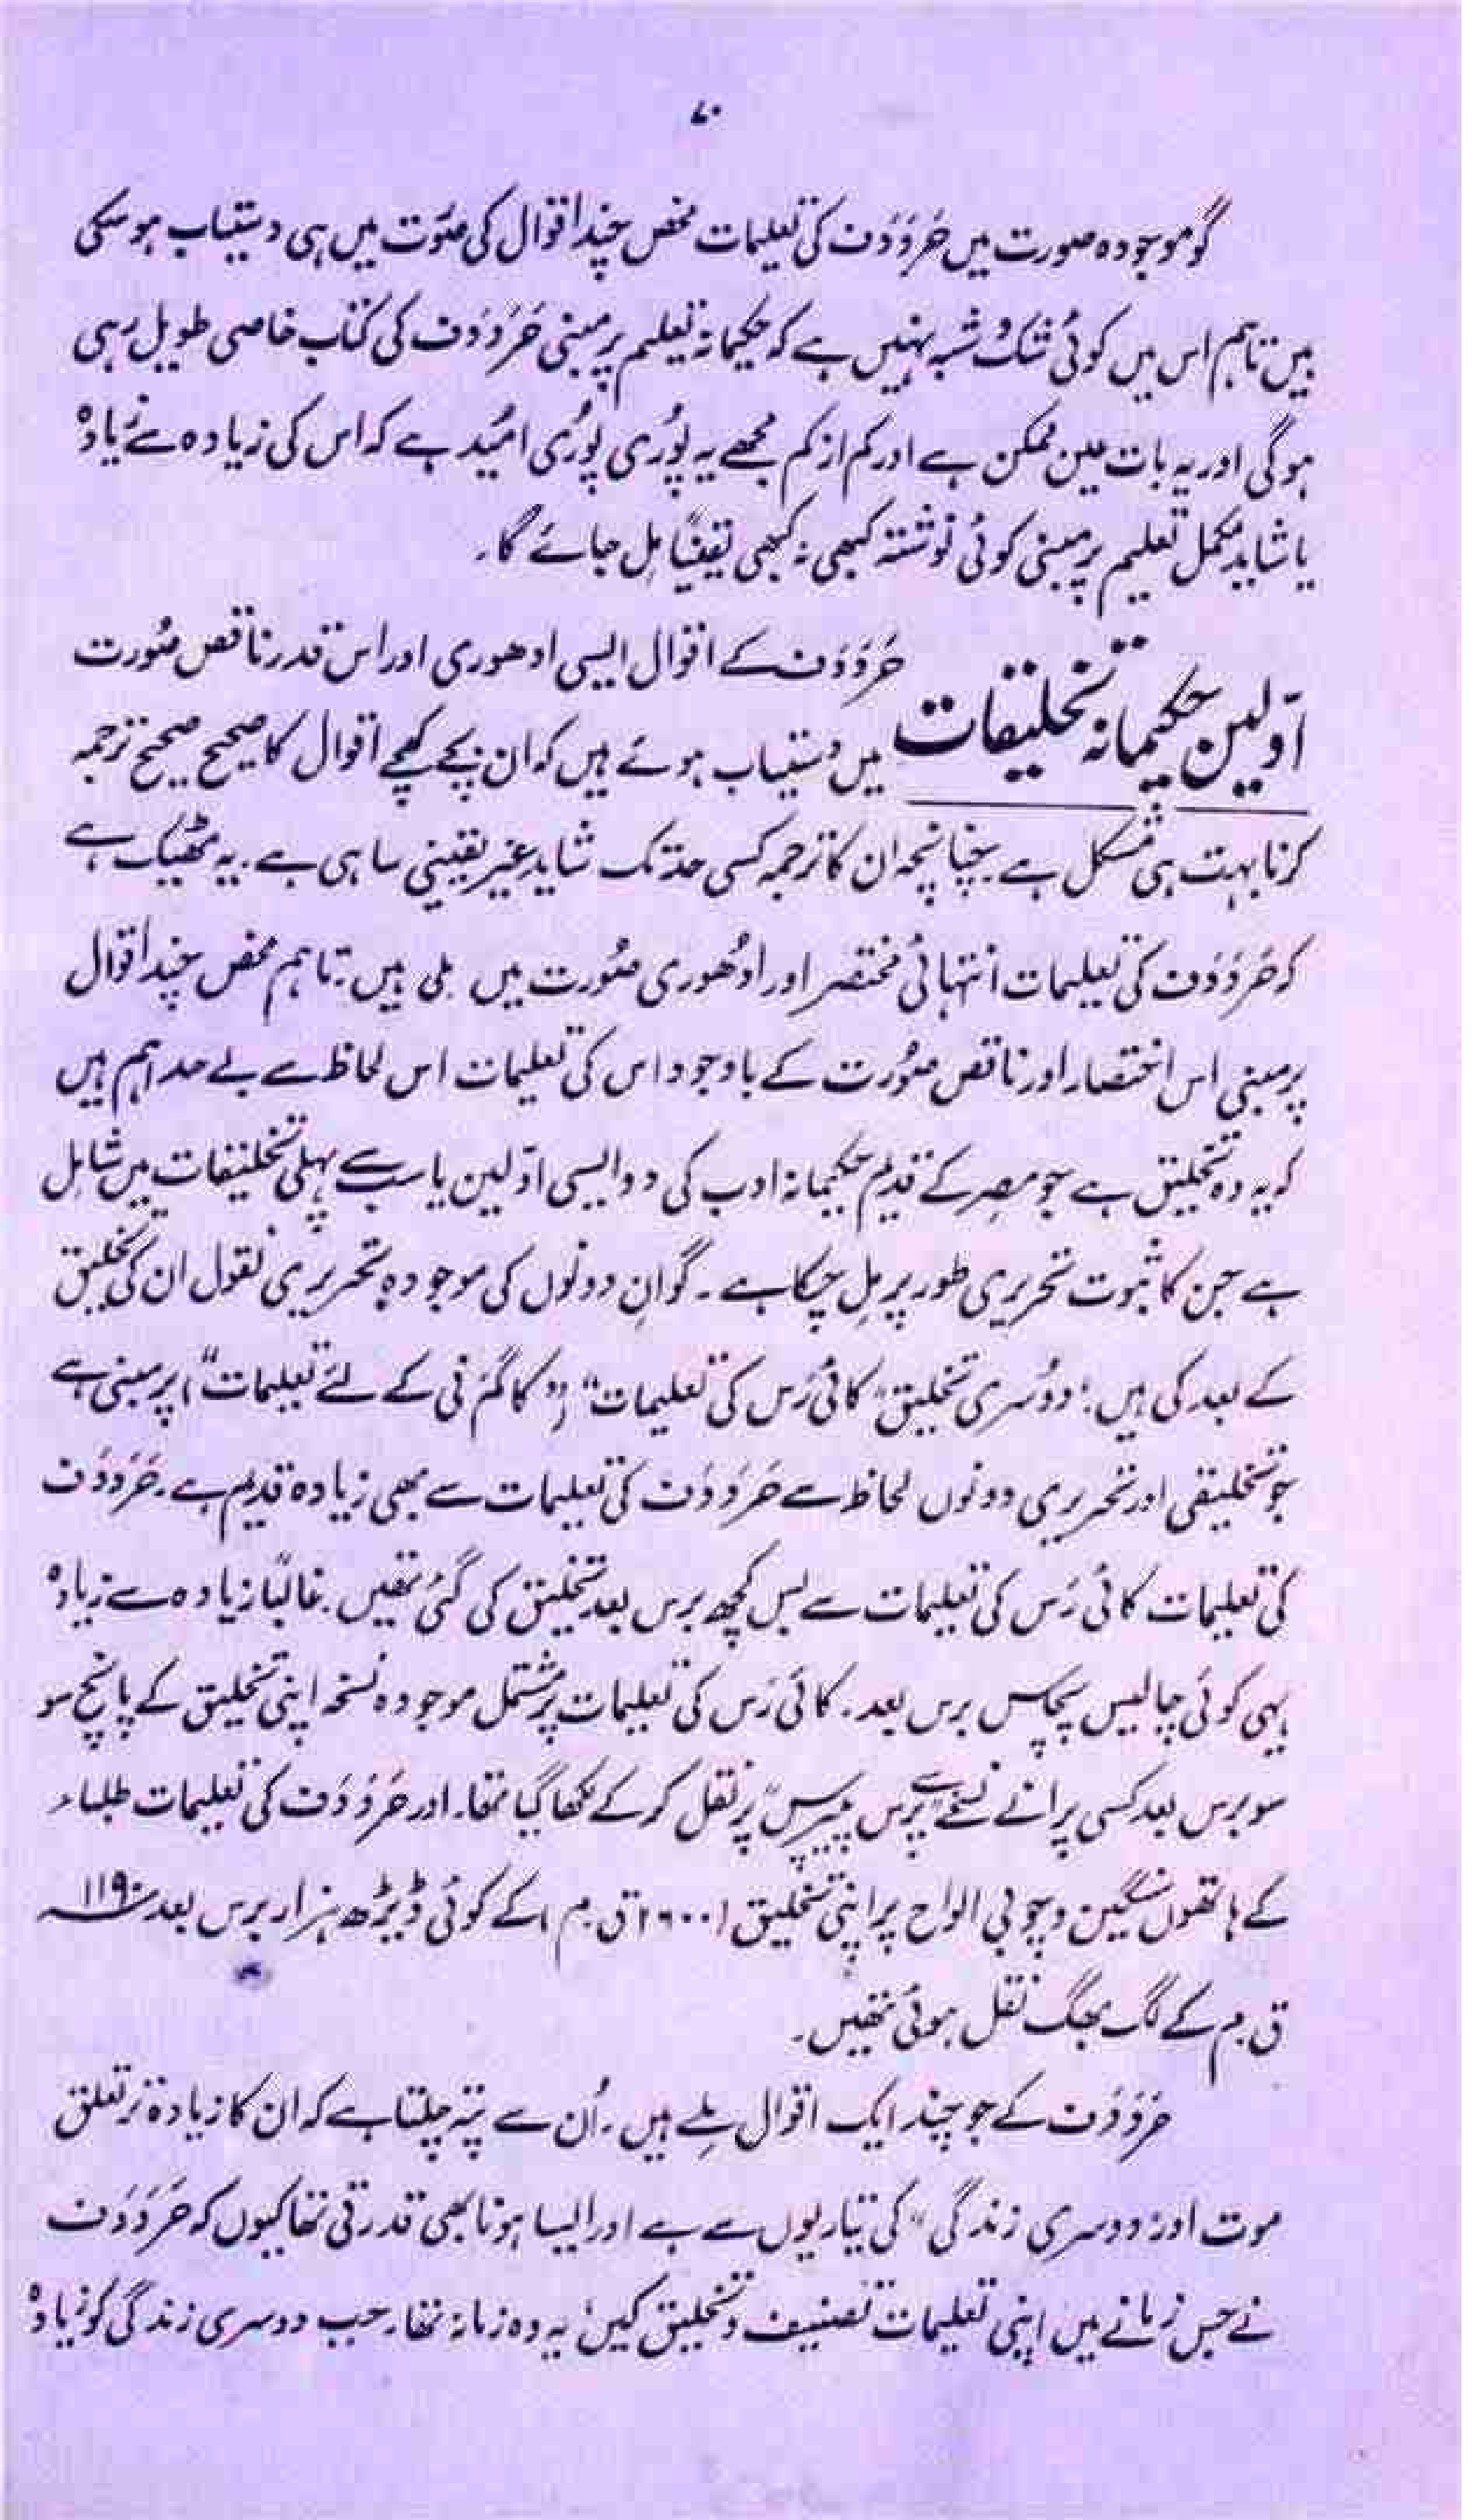 ۷۰
گو موجودہ صورت میں حَروَدَف کی تعلیمات محض چند اقوال کی صُورت میں ہی دستیاب ہو سکی
ہیں تاہم اس میں کوئی شک و شبہ نہیں ہے کہ حکیمانہ تعلیم پر مبنی حَرَوَدَف کی کتاب خاصی طویل رہی
ہوگی اور یہ بات عین ممکن ہے اور کم از کم مجھے یہ پُوری پُوری اُمید ہے کہ اس کی زیادہ سے زیادہ
یا شاید مکمل تعلیم پر مبنی کوئی نوشتہ کبھی نہ کبھی یقیناً مِل جائے گا۔
اوّلین حکیمانہ تخلیقات
حَرَوَدَف کے اقوال ایسی ادھوری اور اس قدر ناقص صُورت
میں دستیاب ہوئے ہیں کہ ان بچے کھچے اقوال کا صحیح صحیح ترجمہ
کرنا بہت ہی مُشکل ہے۔ چنانچہ ان کا ترجمہ کسی حد تک شاید غیر یقینی سا ہی ہے۔ یہ ٹھیک ہے
کہ حَرَوَدَف کی تعلیمات انتہائی مُختصر اور ادُھوری صُورت میں ملی ہیں۔ تاہم محض چند اقوال
پر مبنی اس اختصار اور ناقص صُورت کے باوجود اس کی تعلیمات اس لحاظ سے بے حد اہم ہیں
کہ یہ وہ تخلیق ہے جو مِصر کے قدیم حکیمانہ ادب کی دو ایسی اوّلین یا سب سے پہلی تخلیقات میں شامِل
ہے جن کا ثبوت تحریری طور پر مِل چکا ہے۔ گو اِن دونوں کی موجودہ تحریری نقول ان کی تخلیق
کے بعد کی ہیں؛ دُوسری تخلیق "کائی رَس کی تعلیمات" ("کاگم نی کے لئے تعلیمات") پر مبنی ہے
جو تخلیقی اور تحریری دونوں لحاظ سے حَرَوَدَف کی تعلیمات سے بھی زیادہ قدیم ہے۔ حَرَوَدَف
کی تعلیمات کائی رَس کی تعلیمات سے بس کچھ برس بعد تخلیق کی گئی تھیں۔ غالباً زیادہ سے زیادہ
یہی کوئی چالیس پچاس برس بعد۔ کائی رَس کی تعلیمات پر مُشتمل موجودہ نسخہ اپنی تخلیق کے پانچ سو
سو برس بعد کسی پرانے نسخے سے "پرس پیپرس" پر نقل کر کے لکھا گیا تھا۔ اور حَرَوَدَف کی تعلیمات طلباء
کے ہاتھوں سنگین و چوبی الواح پر اپنی تخلیق (۲۶۰۰ ق۔م) کے کوئی ڈیڑھ ہزار برس بعد ۱۱۹۰ء
ق۔م کے لگ بھگ نقل ہوئی تھیں۔
حَرَوَدَف کے جو چند ایک اقوال مِلے ہیں۔ اُن سے پتہ چلتا ہے کہ ان کا زیادہ تر تعلق
موت اور "دوسری زندگی" کی تیاریوں سے ہے اور ایسا ہونا بھی قدرتی تھا کیوں کہ حَرَوَدَف
نے جس زمانے میں اپنی تعلیمات تصنیف و تخلیق کیں، یہ وہ زمانہ تھا۔ جب دوسری زندگی کو زیادہ